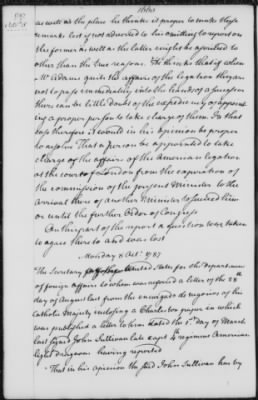 1686
1787
Oct. 5
as well as the place he thinks it proper to make these
remarks lest if not adverted to his omitting to report on
the former as well as the latter might be ascribed to
other than the true reason. He thinks that if when
Mr Adams quits the affairs of the legation they are
not to pass immediately into the hands of a successor
there can be little doubt of the expediency of appoint
ing a proper person to take charge of them. In that
case therefore it would in his opinion be proper
to resolve That a person be appointed to take
charge of the affairs of the American legation
at the court of London from the expiration of
the commission of the present minister to the
arrival there of another Minister to succeed him
or until the further Order of Congress
On this part of the report a question was taken
to agree thereto and was lost
Monday 8 Octr. 1787
The Secretary of the United States for the department
of foreign affairs to whom was referred a letter of the 28th
day of August last from the encargado de negocios of his
Catholic Majesty inclosing a Charleston paper in which
was published a letter to him dated the 1st. day of March
last signed John Sullivan late capt 4th regiment American
light dragoons having reported
That in his opinion the said John Sullivan has by